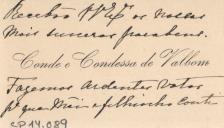 Recebão V. Ex.as os nossos
mais sinceros parabens.
Conde e Condessa de Valbom
Fazemos ardentes votos
p.a que Mãe e filhinho conti-
CP14.089